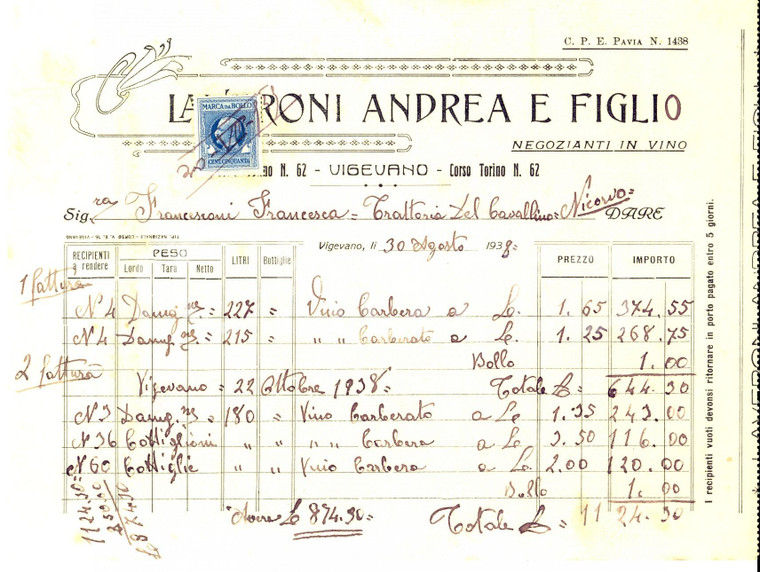 C. P. E. PAVIA N. 1438
LAVERONI ANDREA E FIGLIO
MARCA DA BOLLO
CENT. CINQUANTA
NEGOZIANTI IN VINO
N. 62 - VIGEVANO - Corso Torino N. 62
Sig.ra Francisconi Francesca = Trattoria Del Cavallino = Nicorvo = DARE
Vigevano, li 30 Agosto 1938=
RECIPIENTI a rendere PESO Lordo Tara Netto LITRI Bottiglie PREZZO IMPORTO
1 fattura
N° 4 Damig.ne = 227 " Vino Barbera a L. 1.65 374.55
N° 4 Damig.ne = 215 " " " Barberato a L. 1.25 268.75
Bollo 1.00
2 fattura
Vigevano = 22 Ottobre 1938= Totale L = 644.30
N° 3 Damig.ne = 180 " Vino Barberato a L. 1.35 243.00
N° 36 Bottiglioni " " " " Barbera a L. 3.50 116.00
N° 60 Bottiglie " " Vino Barbera a L. 2.00 120.00
Bollo 1.00
L 874.30= Totale L = 1124.30
1124.30=
250.00
L 874.30
I recipienti vuoti devonsi ritornare in porto pagato entro 5 giorni.
LAVERONI ANDREA E FIGLIO